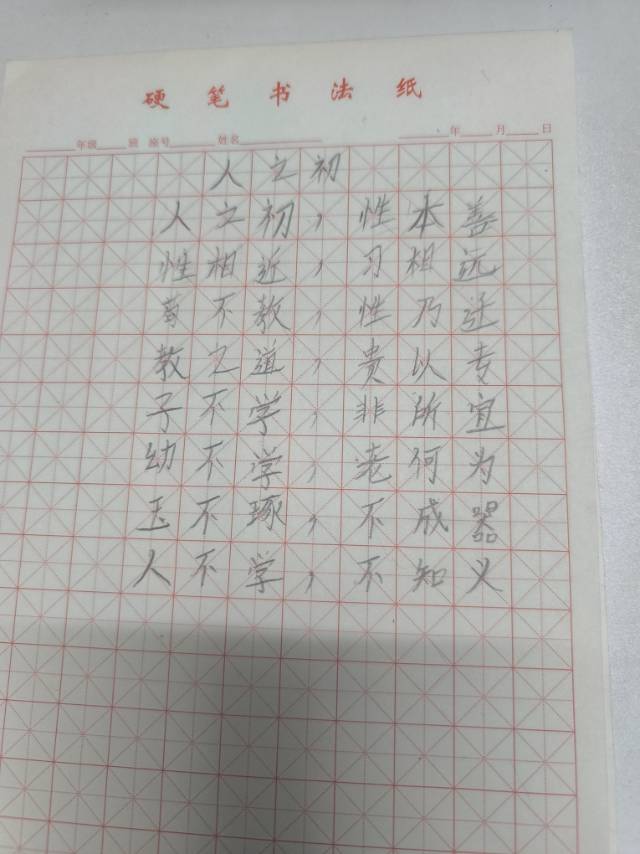 硬笔书法纸
年级 班 座号 姓名 年 月 日
人之初
人之初，性本善
性相近，习相远
苟不教，性乃迁
教之道，贵以专
子不学，非所宜
幼不学，老何为
玉不琢，不成器
人不学，不知义